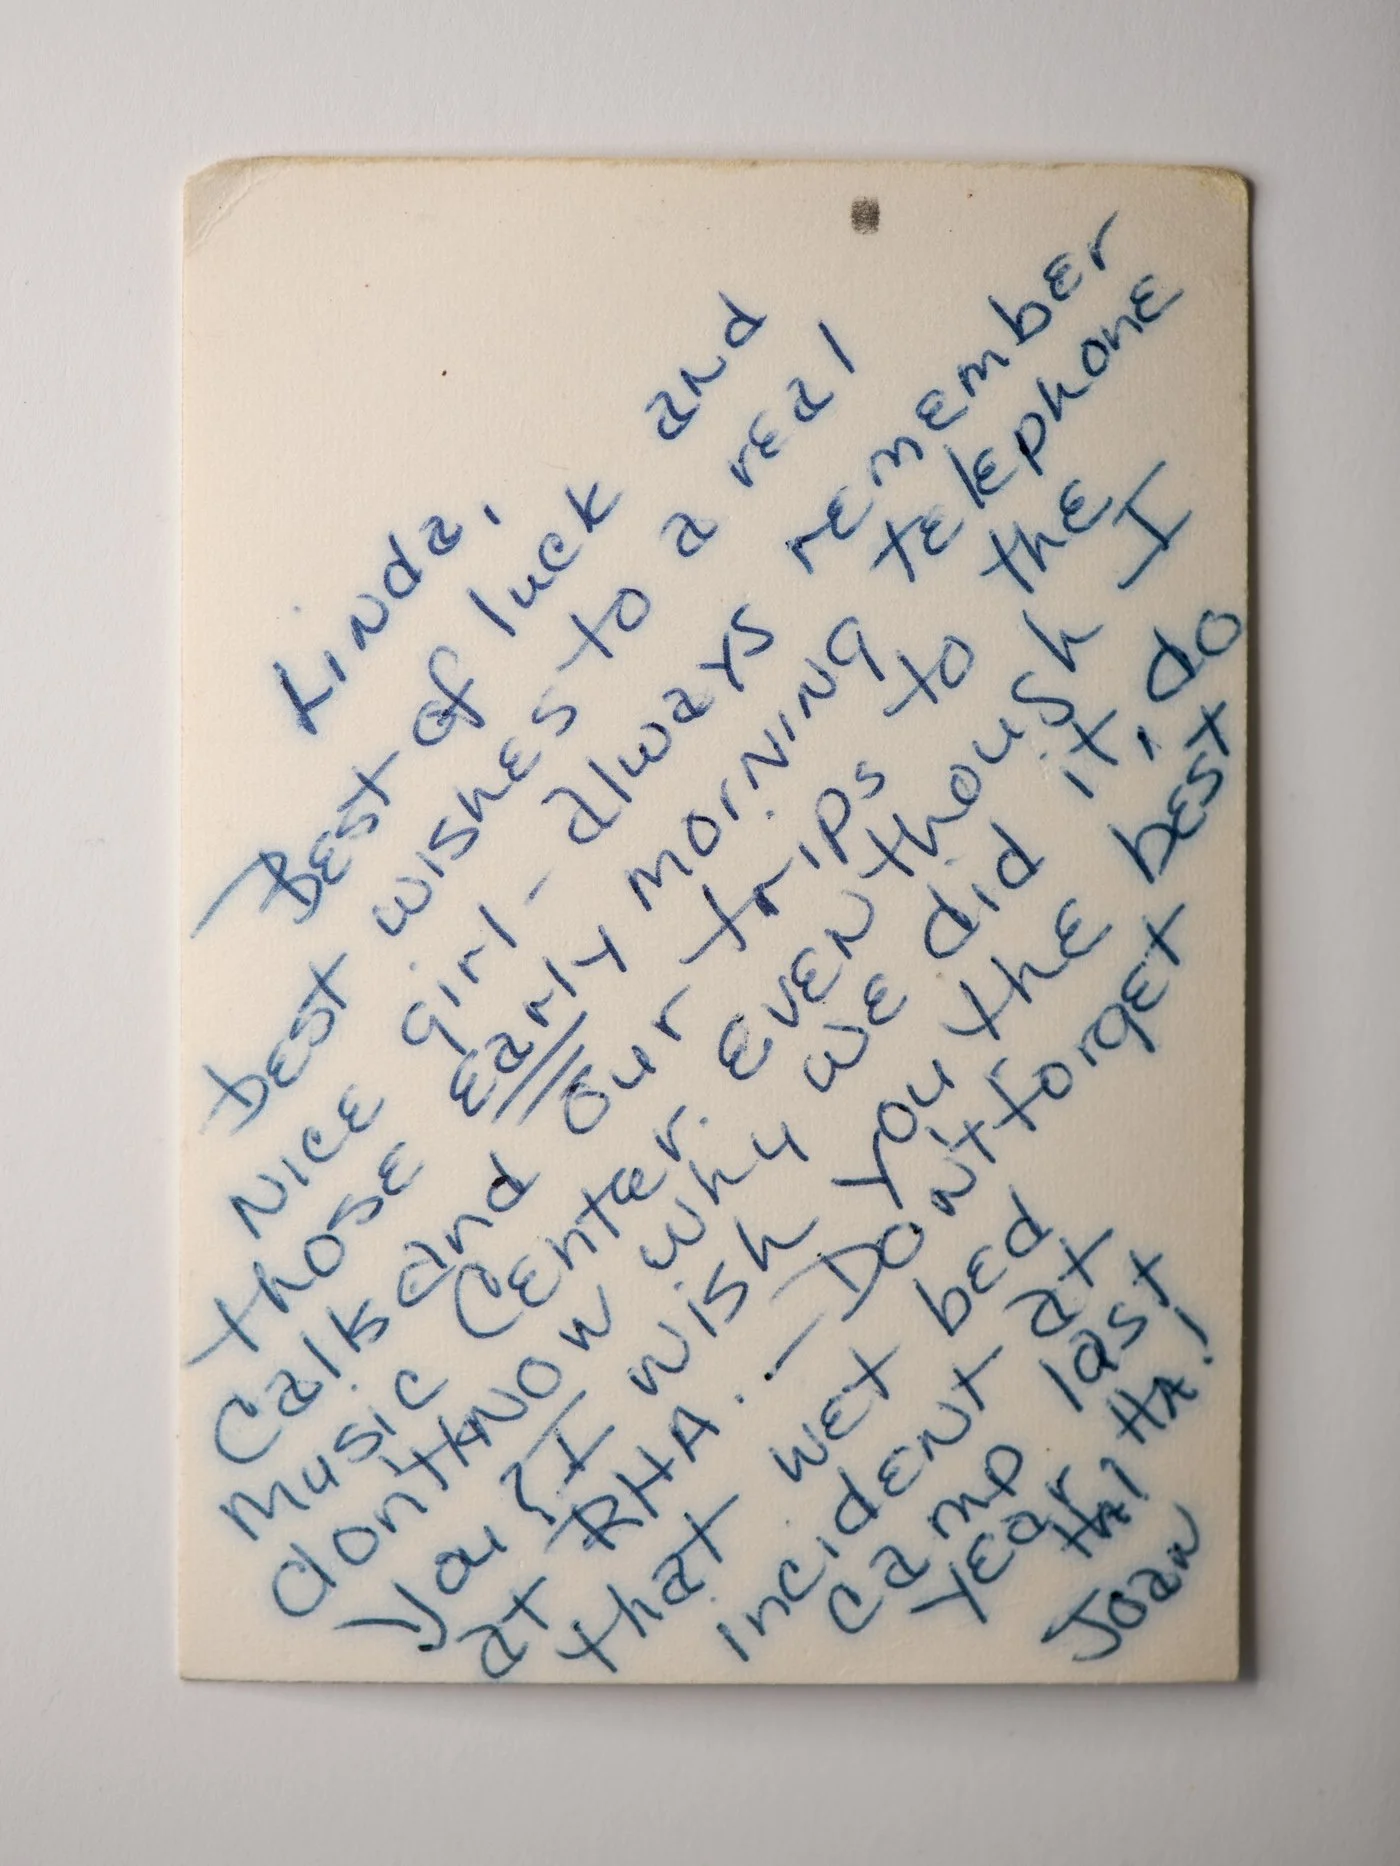 Linda,
Best of luck and
best wishes to a real
nice girl - always remember
those early morning telephone
calls and our trips to the
music center. Even though I
don't know why we did it, do
you? I wish you the best
at RHA. - Don't forget
that wet bed
incident at
camp last
year Ha! Ha!
Joan